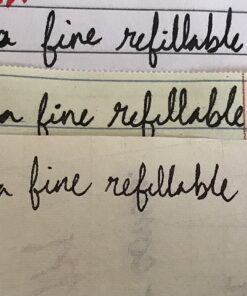 a fine refillable
a fine refillable
a fine refillable